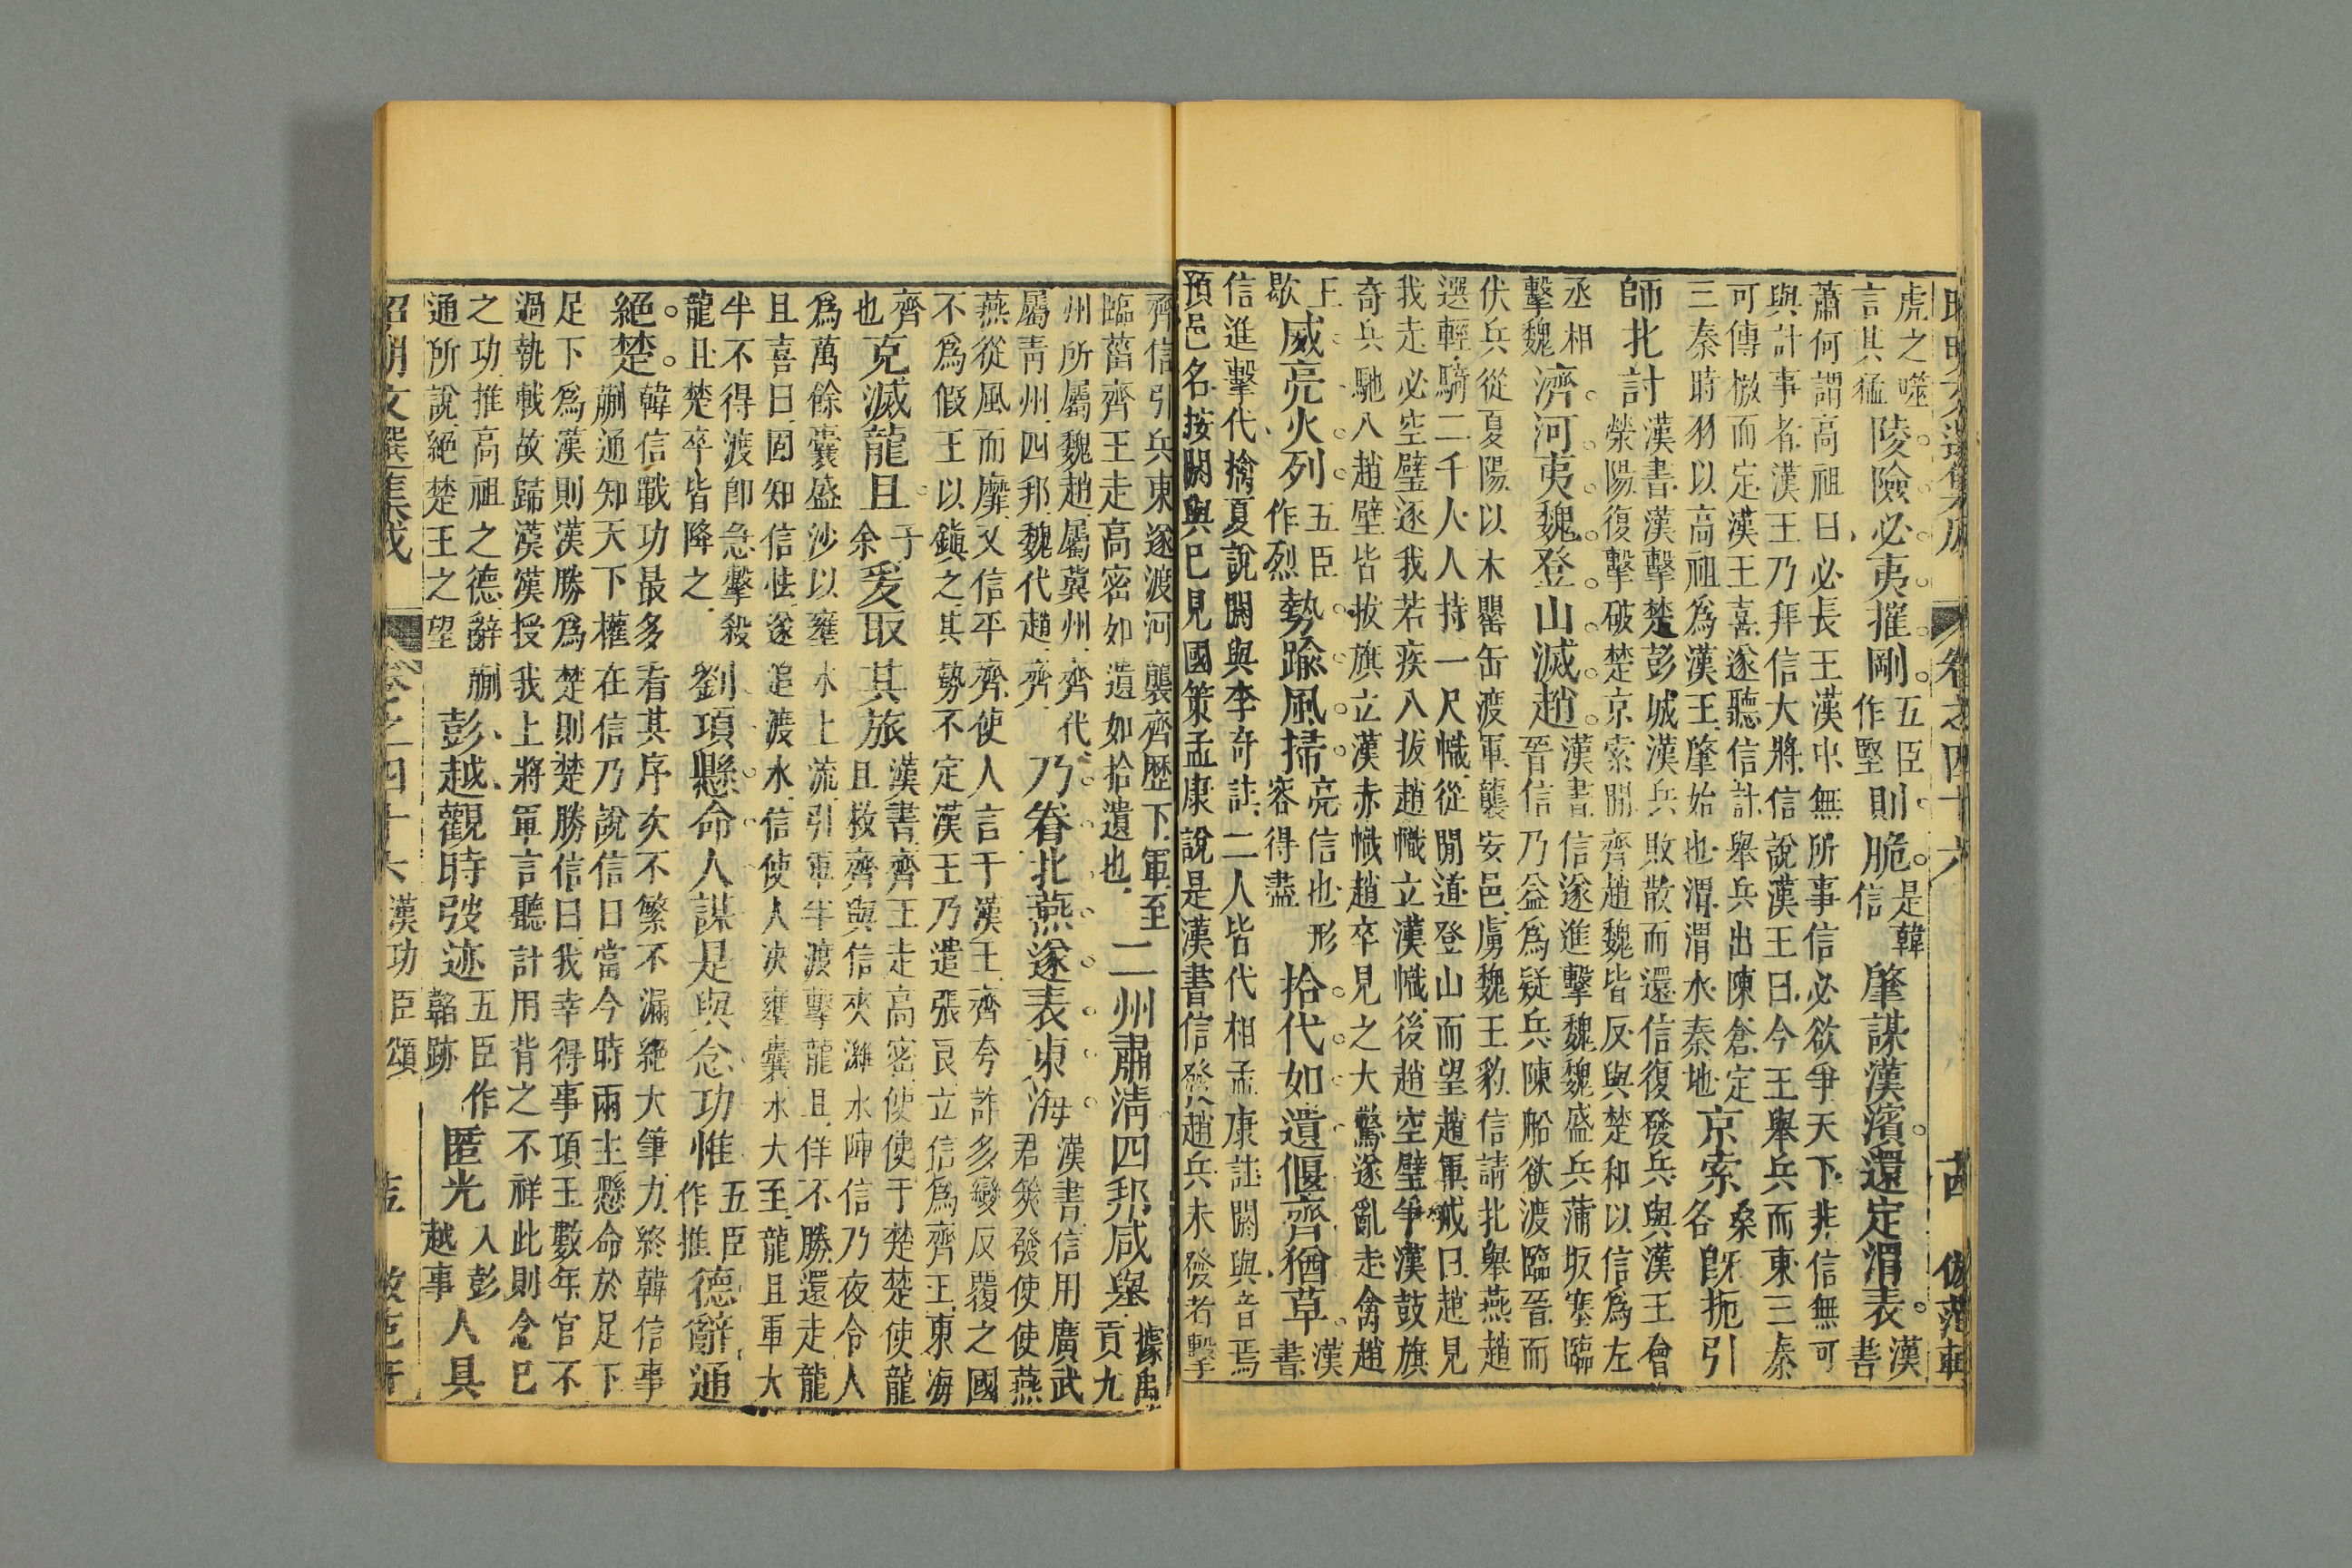 昭明文選集成 卷之四十六 倣范軒
虎之噬言其猛陵險必夷摧剛五臣作堅則脆是韓信肇謀漢濱還定渭表漢書
蕭何謂高祖曰必長王漢中無所事信必欲爭天下非信無可
與計事者漢王乃拜信大將信說漢王曰今王舉兵而東三秦
可傳檄而定漢王喜遂聽信計舉兵出陳倉定
三秦時羽以高祖爲漢王肇始也渭渭水秦地京索桑各旣扼引
師北討漢書漢擊楚彭城漢兵敗散而還信復發兵與漢王會
滎陽復擊破楚京索閒齊趙魏皆反與楚和以信爲左
丞相擊魏濟河夷魏登山滅趙漢書信遂進擊魏魏盛兵蒲坂塞臨
晉信乃益爲疑兵陳船欲渡臨晉而
伏兵從夏陽以木罌缶渡軍襲安邑虜魏王豹信請北舉燕趙
選輕騎二千人人持一尺幟從閒道登山而望趙軍戒曰趙見
我走必空壁逐我若疾入拔趙幟立漢幟後趙空壁爭漢鼓旗
奇兵馳入趙壁皆拔旗立漢赤幟趙卒見之大驚遂亂走禽趙
王歇威亮火列五臣作烈勢踰風掃亮信也形容得盡拾代如遺偃齊猶草漢書
信進擊代擒夏說閼與李奇註二人皆代相孟康註閼與音焉
預邑名按閼與已見國策孟康說是漢書信發趙兵未發者擊
齊信引兵東遂渡河襲齊歷下軍至
臨菑齊王走高密如遺如拾遺也二州肅淸四邦咸舉據禹貢九
州所屬魏趙屬冀州齊代
屬靑州四邦魏代趙齊乃眷北燕遂表東海漢書信用廣武君筴發使使燕
燕從風而靡又信平齊使人言于漢王齊夸詐多變反覆之國
不爲假王以鎭之其勢不定漢王乃遣張良立信爲齊王東海
齊也克滅龍且于余爰取其旅漢書齊王走高密使使于楚楚使龍
且救齊與信夾濰水陣信乃夜令人
爲萬餘囊盛沙以壅水上流引軍半渡擊龍且佯不勝還走龍
且喜曰固知信怯遂追渡水信使人決壅囊水大至龍且軍大
半不得渡卽急擊殺
龍且楚卒皆降之劉項懸命人謀是與念功惟五臣作推德辭通
絕楚韓信戰功最多看其序次不繁不漏絕大筆力終韓信事
蒯通知天下權在信乃說信曰當今時兩主懸命於足下
足下爲漢則漢勝爲楚則楚勝信曰我幸得事項王數年官不
過執戟故歸漢漢授我上將軍言聽計用背之不祥此則念已
之功推高祖之德辭蒯
通所說絕楚王之望彭越觀時弢迹五臣作韜跡匿光入彭越事人具
昭明文選集成 卷之四十六 漢功臣頌